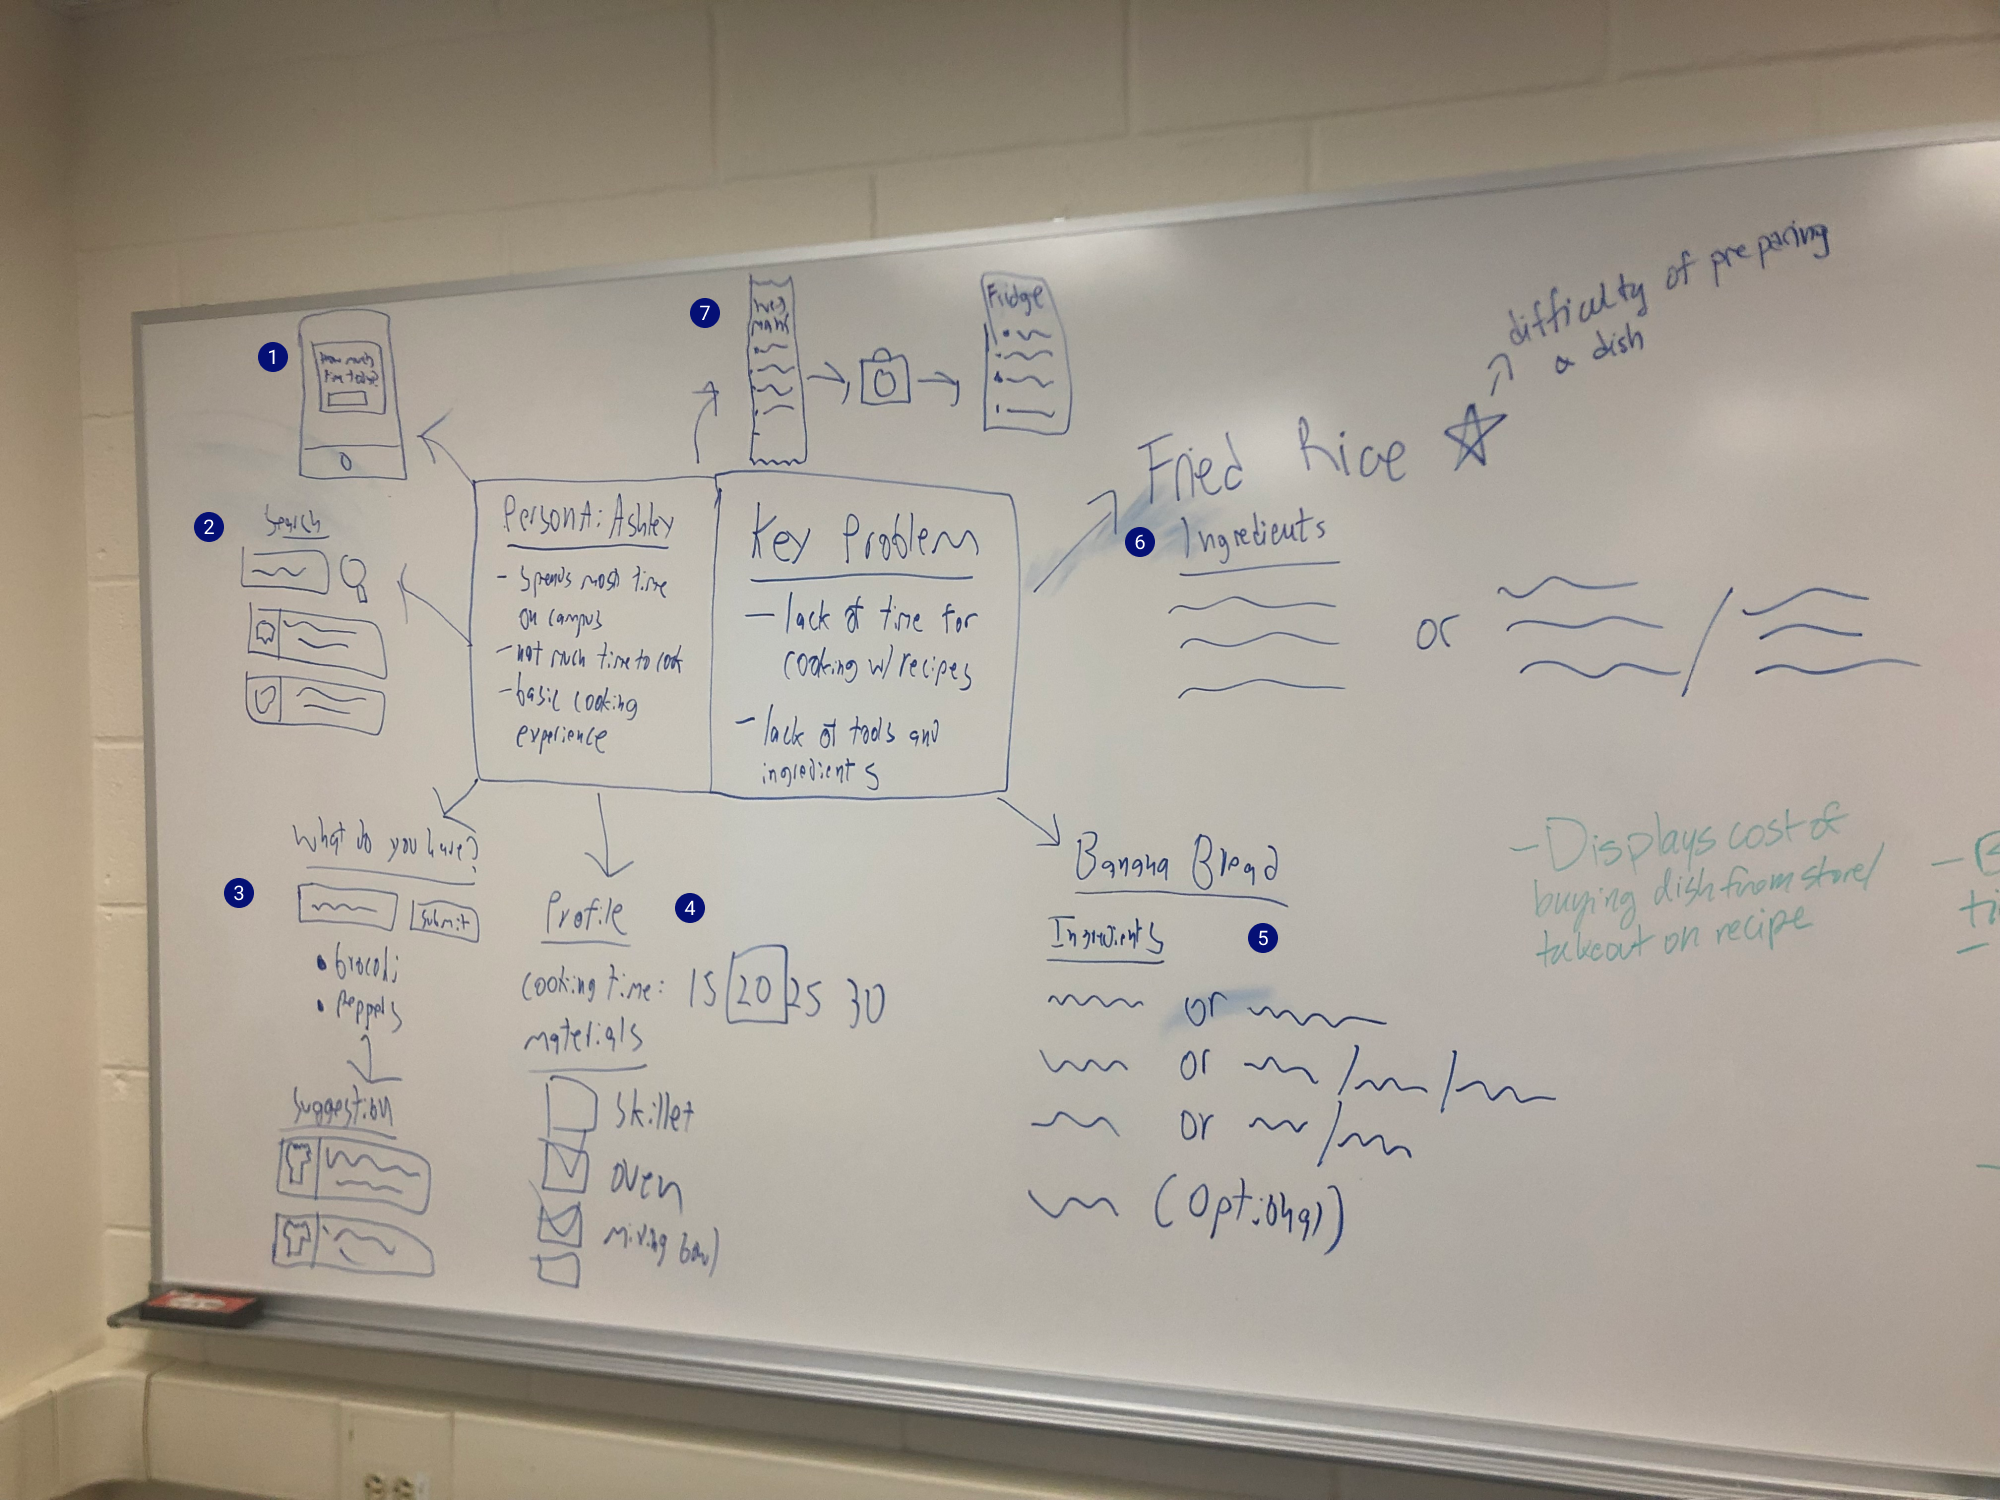 1
How much
time today?
7
Weg
mans
Fridge
difficulty of preparing
a dish
Fried Rice
6
Ingredients
or
2
Search
Persona: Ashley
- spends most time
on campus
- not much time to cook
- basic cooking
experience
Key Problem
- lack of time for
cooking w/ recipes
- lack of tools and
ingredients
3
What do you have?
Submit
• brocoli
• peppers
Suggestion
4
Profile
cooking time: 15 20 25 30
materials
skillet
oven
mixing bowl
Banana Bread
5
Ingredients
or
or
or
(Optional)
- Displays cost of
buying dish from store/
takeout on recipe